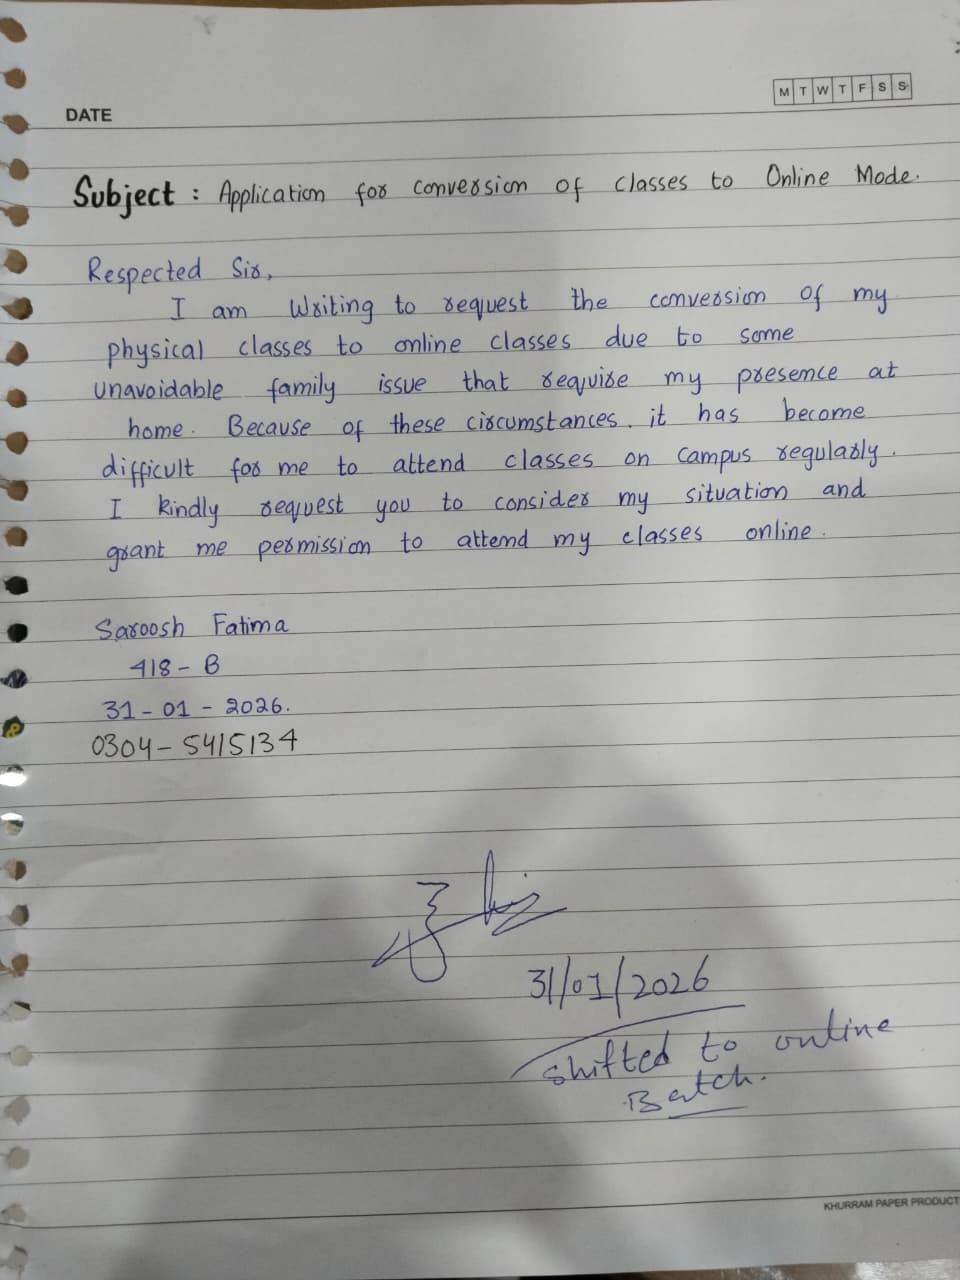 M T W T F S S
DATE
Subject : Application for conversion of classes to Online Mode.
Respected Sir,
I am Writing to request the conversion of my
physical classes to online classes due to some
unavoidable family issue that require my presence at
home. Because of these circumstances, it has become
difficult for me to attend classes on campus regularly.
I kindly request you to consider my situation and
grant me permission to attend my classes online.
Saroosh Fatima
418-B
31-01-2026.
0304-5415134
31/01/2026
shifted to online
Batch.
KHURRAM PAPER PRODUCT